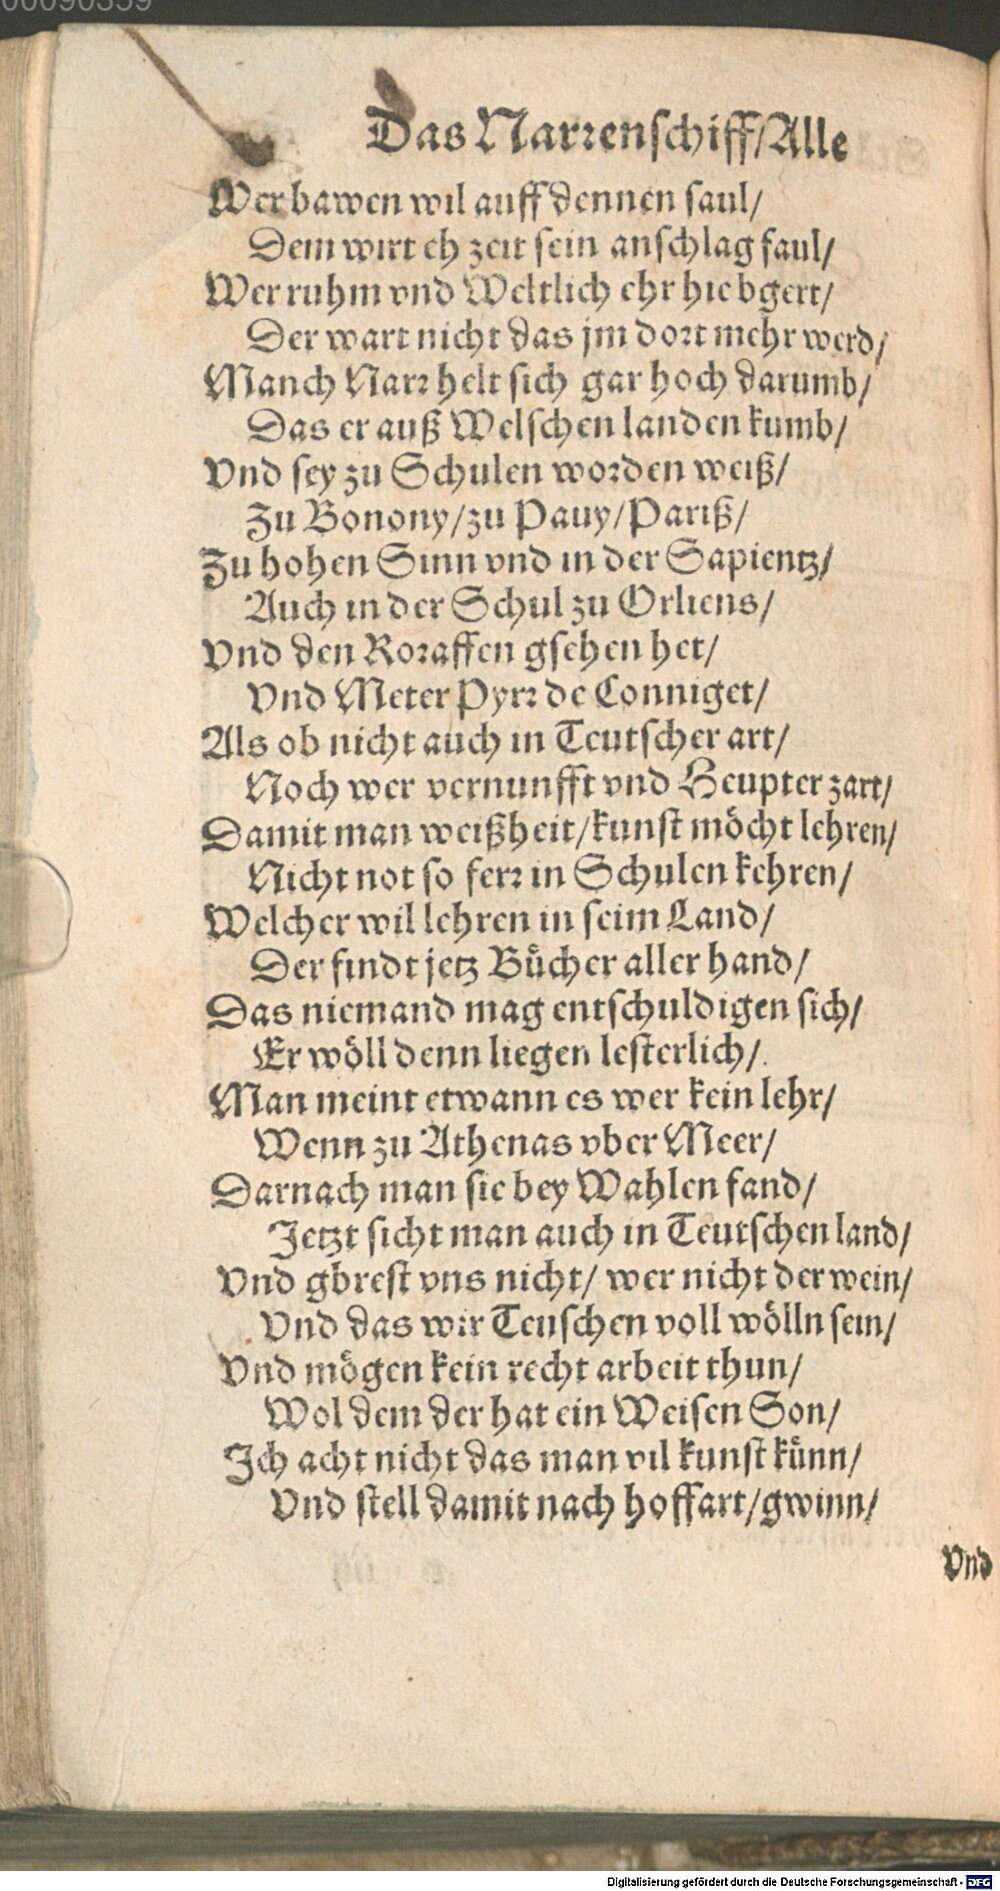 00090359
Das Narrenschiff/Alle
Wer bawen wil auff dennen saul/
Dem wirt eh zeit sein anschlag faul/
Wer ruhm vnd Weltlich ehr hie bgert/
Der wart nicht das jm dort mehr werd/
Manch Narr helt sich gar hoch darumb/
Das er auß Welschen landen kumb/
Vnd sey zu Schulen worden weiß/
Zu Bonony/zu Pauy/Pariß/
Zu hohen Sinn vnd in der Sapientz/
Auch in der Schul zu Orliens/
Vnd den Roraffen gsehen het/
Vnd Meter Pyrr de Conniget/
Als ob nicht auch in Teutscher art/
Noch wer vernunfft vnd Heupter zart/
Damit man weißheit/kunst möcht lehren/
Nicht not so ferr in Schulen kehren/
Welcher wil lehren in seim Land/
Der findt jetz Bücher aller hand/
Das niemand mag entschuldigen sich/
Er wöll denn liegen lesterlich/
Man meint etwann es wer kein lehr/
Wenn zu Athenas vber Meer/
Darnach man sie bey Wahlen fand/
Jetzt sicht man auch in Teutschen land/
Vnd gbrest vns nicht/ wer nicht der wein/
Vnd das wir Teuschen voll wölln sein/
Vnd mögen kein recht arbeit thun/
Wol dem der hat ein Weisen Son/
Ich acht nicht das man vil kunst künn/
Vnd stell damit nach hoffart/gwinn/
Vnd
Digitalisierung gefördert durch die Deutsche Forschungsgemeinschaft - DFG